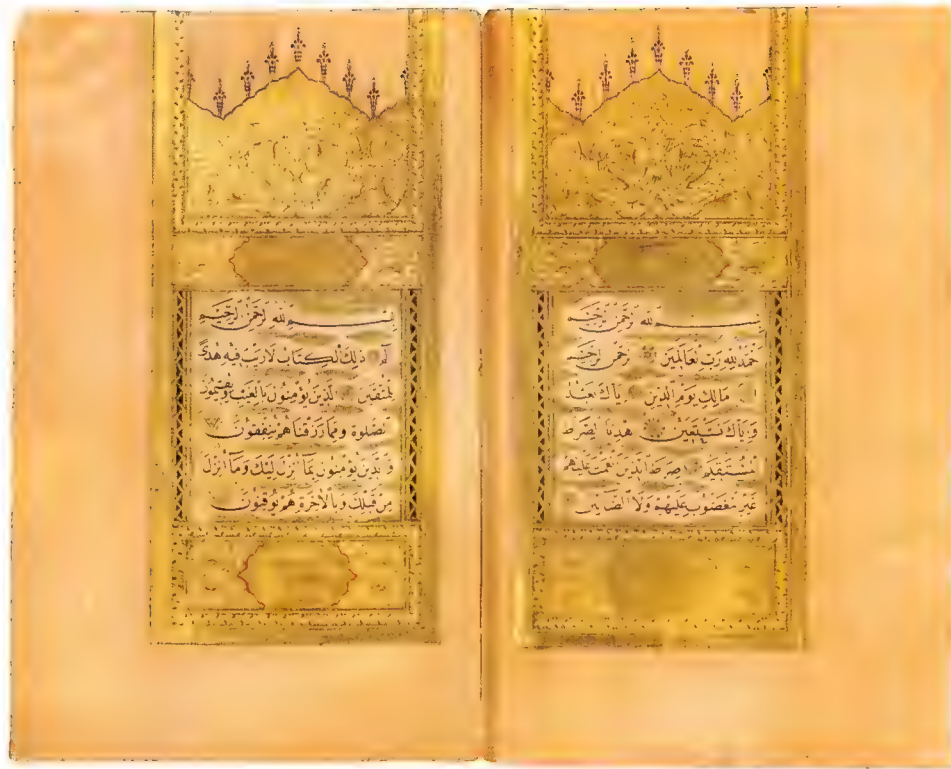 بِسْمِ اللهِ الرَّحْمٰنِ الرَّحِيمِ
اَلْحَمْدُ لِلّٰهِ رَبِّ الْعَالَمِينَ الرَّحْمٰنِ الرَّحِيمِ
مَالِكِ يَوْمِ الدِّينِ اِيَّاكَ نَعْبُدُ
وَاِيَّاكَ نَسْتَعِينُ اِهْدِنَا الصِّرَاطَ
الْمُسْتَقِيمَ صِرَاطَ الَّذِينَ اَنْعَمْتَ عَلَيْهِمْ
غَيْرِ الْمَغْضُوبِ عَلَيْهِمْ وَلَا الضَّالِّينَ
بِسْمِ اللهِ الرَّحْمٰنِ الرَّحِيمِ
الٓمٓ ذٰلِكَ الْكِتَابُ لَا رَيْبَ فِيهِ هُدًى
لِلْمُتَّقِينَ الَّذِينَ يُؤْمِنُونَ بِالْغَيْبِ وَيُقِيمُونَ
الصَّلٰوةَ وَمِمَّا رَزَقْنَاهُمْ يُنْفِقُونَ
وَالَّذِينَ يُؤْمِنُونَ بِمَا اُنْزِلَ اِلَيْكَ وَمَا اُنْزِلَ
مِنْ قَبْلِكَ وَبِالْاٰخِرَةِ هُمْ يُوقِنُونَ